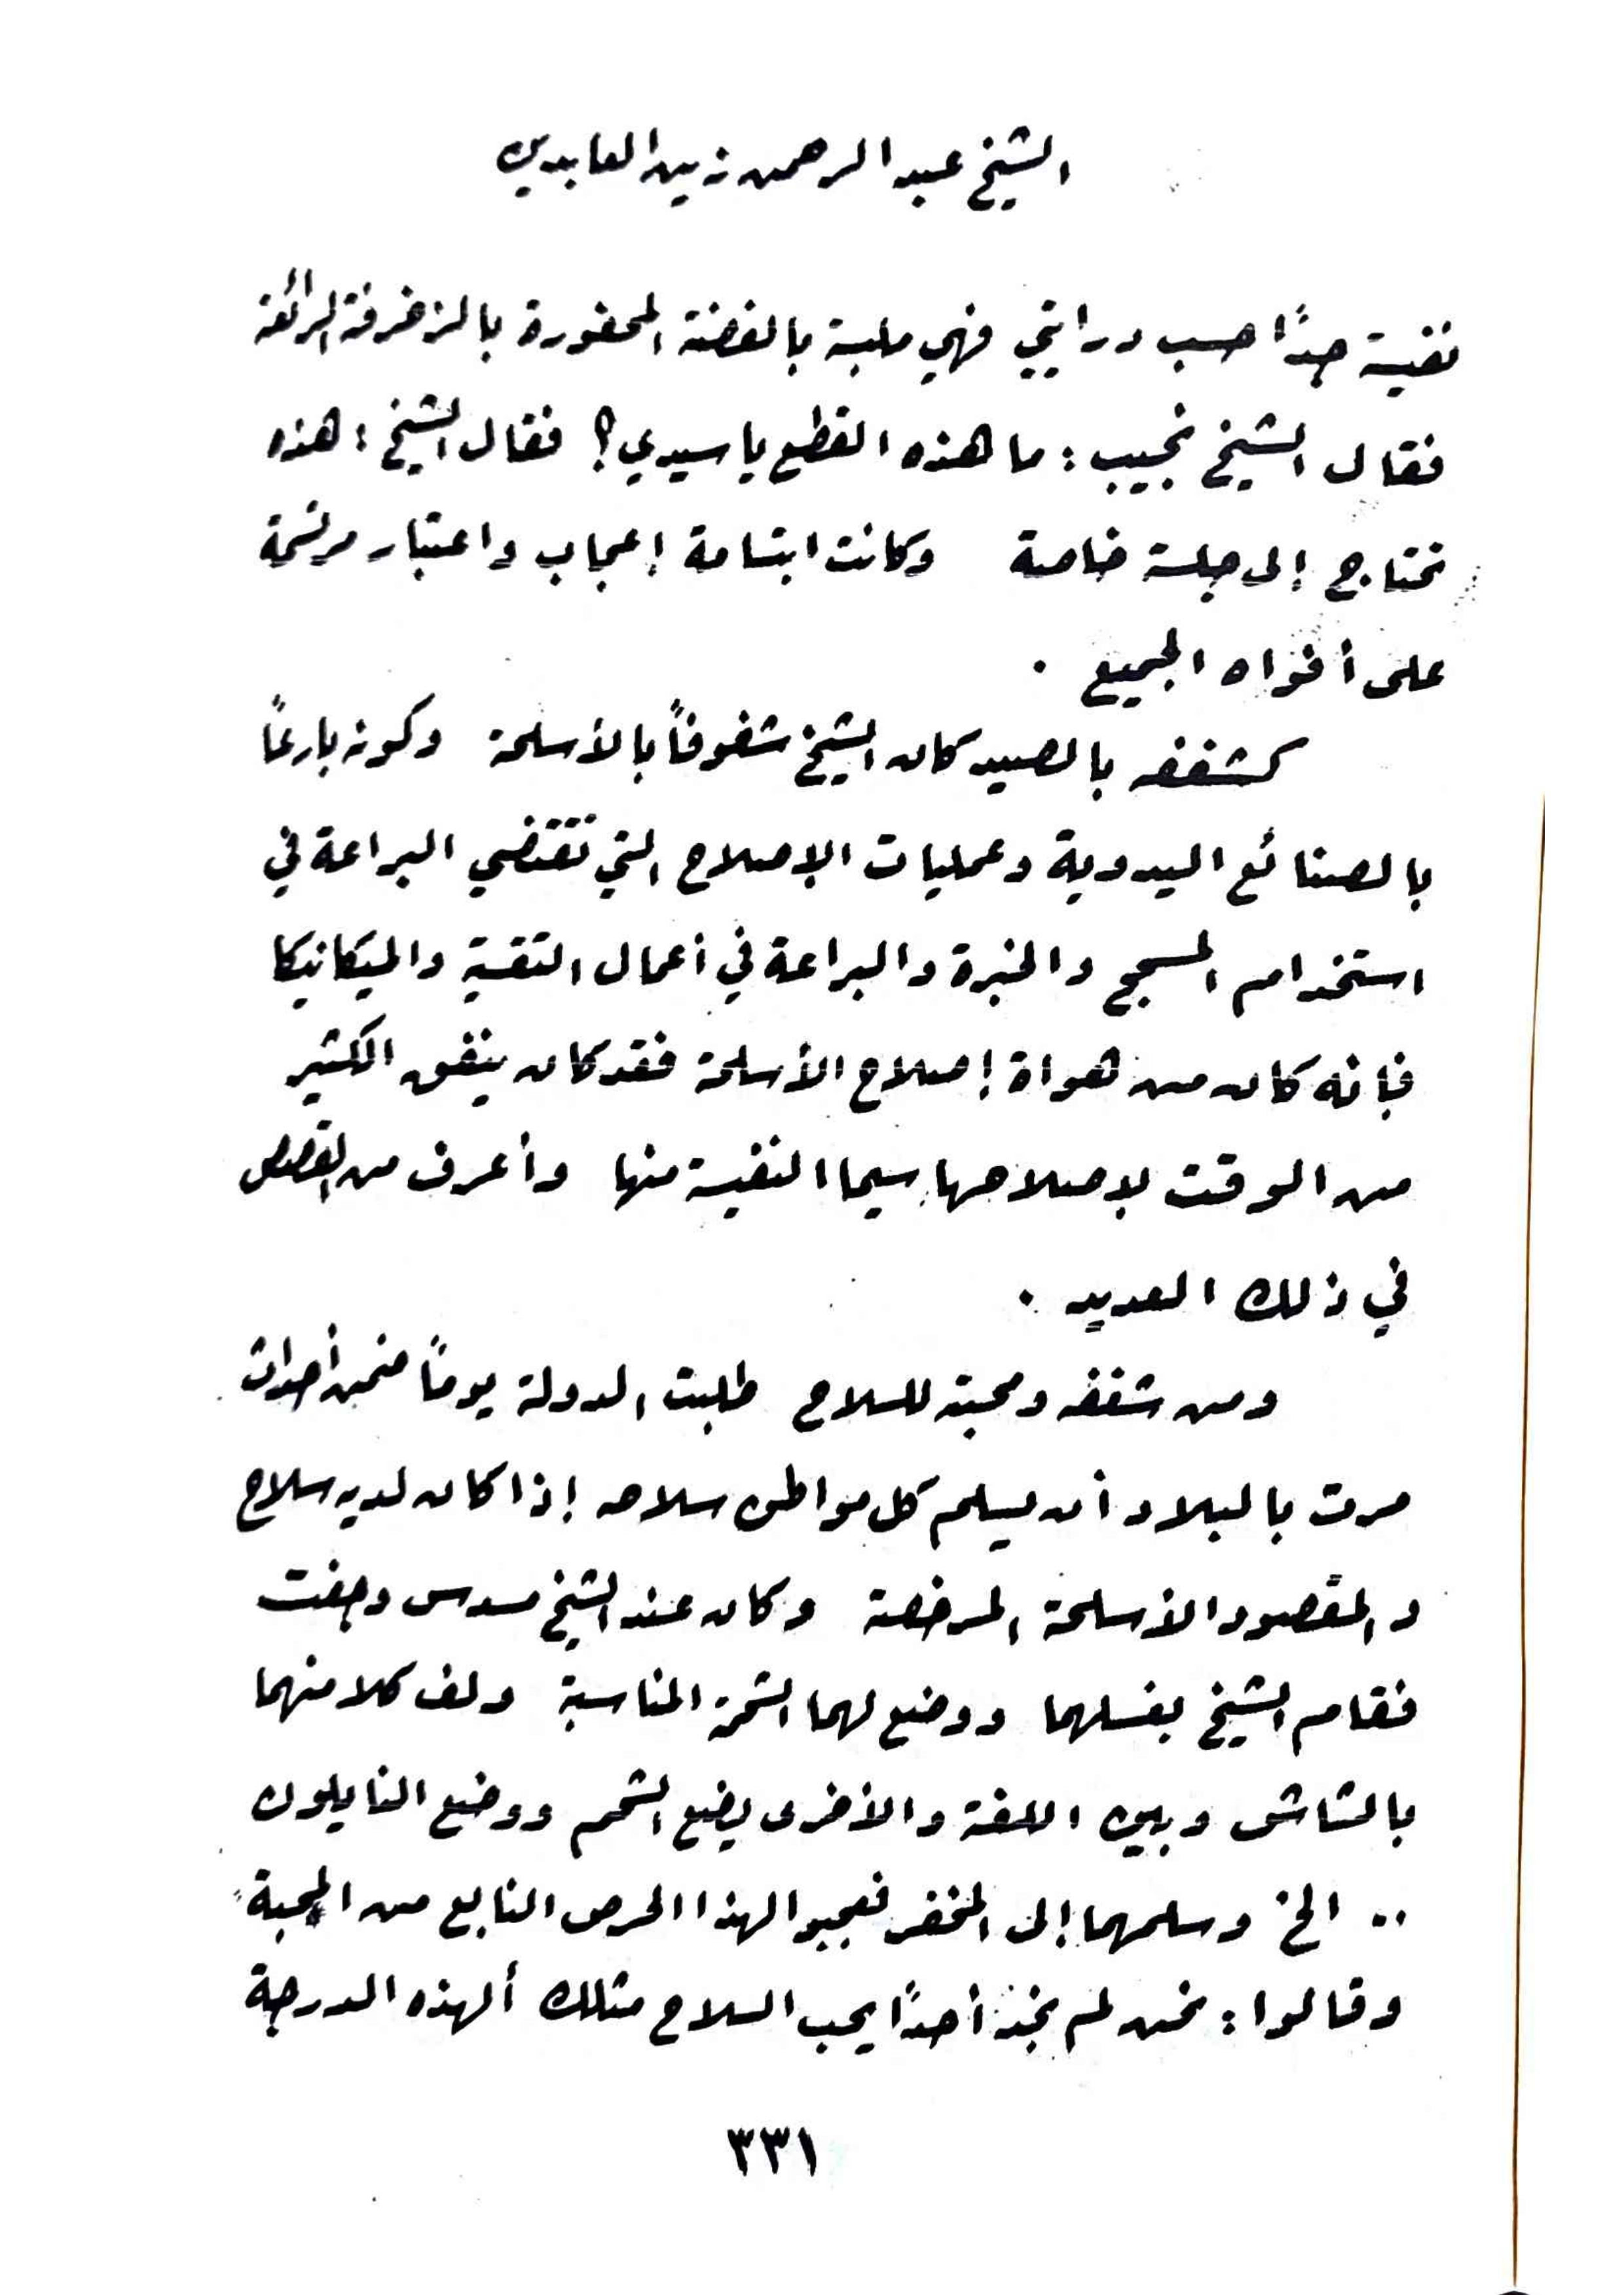 الشيخ عبد الرحمن زين العابدين
نفيسة جداً حسب درايتي فهي ملبسة بالفضة المحفورة بالزخرفة الرائعة
فقال الشيخ نجيب : ما هذه القطع يا سيدي ؟ فقال الشيخ : هذه
تحتاج إلى جلسة خاصة وكانت ابتسامة إعجاب واعتبار مرتسمة
على أفواه الجميع .
كشغفه بالصيد كان الشيخ شغوفاً بالأسلحة وكونه بارعاً
بالصنائع اليدوية وعمليات الإصلاح التي تقتضي البراعة في
استخدام المسحج والخبرة والبراعة في أعمال التقنية والميكانيكا
فإنه كان من هواة إصلاح الأسلحة فقد كان ينفق الكثير
من الوقت لإصلاحها سيما النفيسة منها وأعرف من القصص
في ذلك العديد .
ومن شغفه ومحبته للسلاح طلبت الدولة يوماً ضمن أحداث
مرت بالبلاد أن يسلم كل مواطن سلاحه إذا كان لديه سلاح
والمقصود الأسلحة المرخصة وكان عند الشيخ مسدس وجفت
فقام الشيخ بغسلهما ووضع لهما الشحمة المناسبة ولف كلا منهما
بالشاش وبين اللفة والأخرى يضع الشحم ووضع النايلون
.. الخ وسلمهما إلى المخفر فعجبوا لهذا الحرص النابع من المحبة
وقالوا : نحن لم نجد أحداً يحب السلاح مثلك ألهذه الدرجة
٣٣١